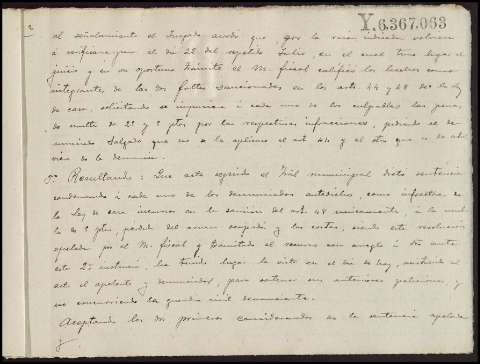 2
Y.6.367.063
al señalamiento el Juzgado acordó que, por la razón indicada volviera
á verificarse para el día 22 del repetido Julio, en el cual tuvo lugar el
juicio y en su oportuno trámite el M. fiscal calificó los hechos como
integrantes de las dos faltas sancionadas en los arts. 44 y 48 de la ley
de caza, solicitando se impusiera á cada uno de los culpables las penas
de multa de 25 y 5 ptas por las respectivas infracciones, pidiendo el
nunciado Salgado que no se le aplicara el art 44 y el otro que se le
de la denuncia.
3º Resultando: Que acto seguido el Tral municipal dictó sentencia
condenando á cada uno de los denunciados antedichos, como infractor de
la Ley de caza incursos en la sanción del art. 48 unicamente, á la multa
de 5 ptas, perdida del arma ocupada y las costas, siendo esta resolución
apelada por el M. fiscal y tramitado el recurso con arreglo á dro ante
esta 2ª instancia, ha tenido lugar la vista en el día de hoy, asistiendo al
acto el apelante y denunciados, para sostener sus anteriores peticiones, y
no concurriendo la guardia civil denunciante.
Aceptando los dos primeros considerandos de la sentencia apelada
y